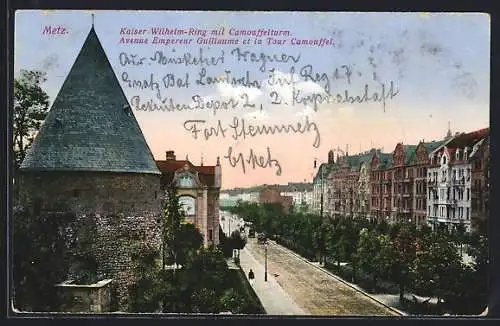 Metz.
Kaiser Wilhelm-Ring mit Camouffelturm.
Avenue Empereur Guillaume et la Tour Camouffel.
Musketier Wagner
Ersatz Bat Landwehr Inf Reg
Rekruten Depot 2, 2. Korporalschaft
Fort Steinmetz
b/ Metz